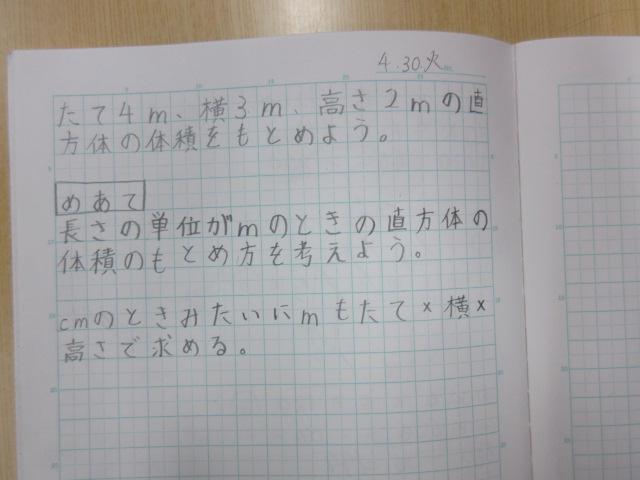 4.30.火
たて4m、横3m、高さ2mの直
方体の体積をもとめよう。
めあて
長さの単位がmのときの直方体の
体積のもとめ方を考えよう。
cmのときみたいにmもたて×横×
高さで求める。